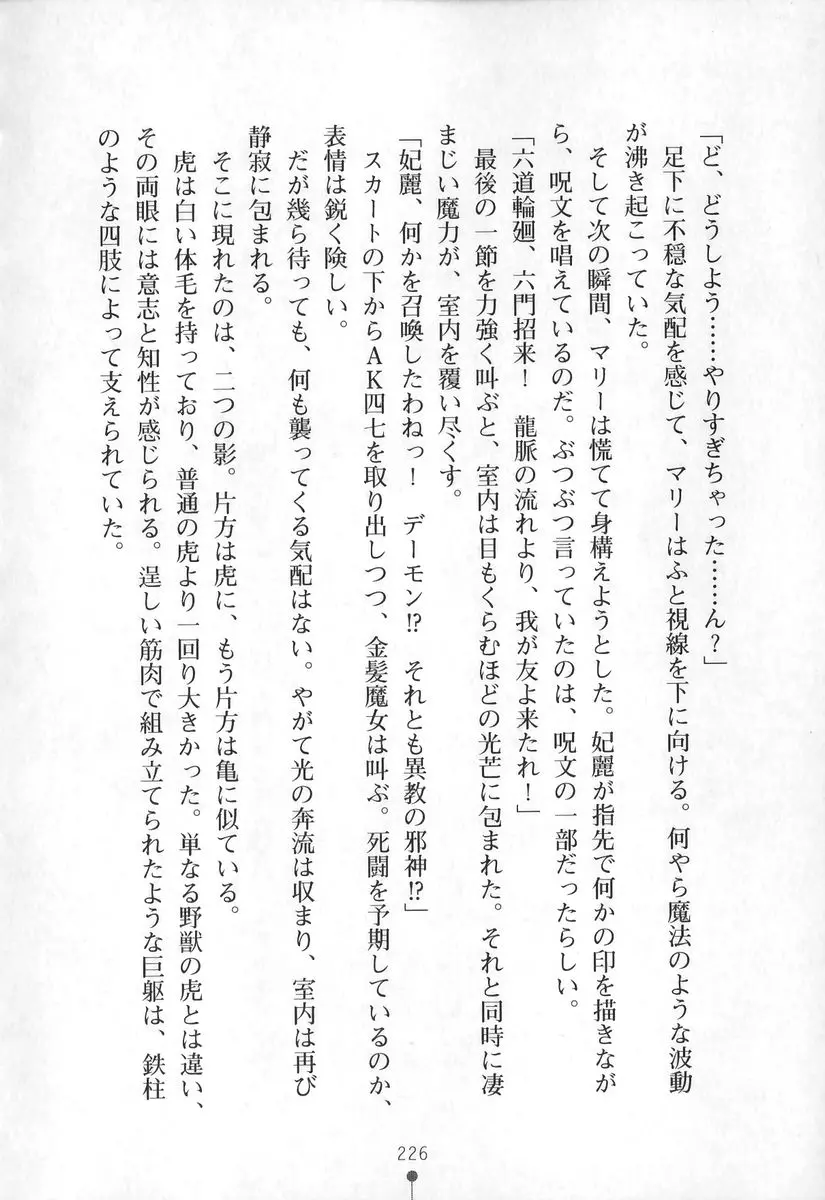 「ど、どうしよう……やりすぎちゃった……ん？」
足下に不穏な気配を感じて、マリーはふと視線を下に向ける。何やら魔法のような波動
が沸き起こっていた。
そして次の瞬間、マリーは慌てて身構えようとした。妃麗が指先で何かの印を描きなが
ら、呪文を唱えているのだ。ぶつぶつ言っていたのは、呪文の一部だったらしい。
「六道輪廻、六門招来！　龍脈の流れより、我が友よ来たれ！」
最後の一節を力強く叫ぶと、室内は目もくらむほどの光芒に包まれた。それと同時に凄
まじい魔力が、室内を覆い尽くす。
「妃麗、何かを召喚したわねっ！　デーモン⁉　それとも異教の邪神⁉」
スカートの下からＡＫ四七を取り出しつつ、金髪魔女は叫ぶ。死闘を予期しているのか、
表情は鋭く険しい。
だが幾ら待っても、何も襲ってくる気配はない。やがて光の奔流は収まり、室内は再び
静寂に包まれる。
そこに現れたのは、二つの影。片方は虎に、もう片方は亀に似ている。
虎は白い体毛を持っており、普通の虎より一回り大きかった。単なる野獣の虎とは違い、
その両眼には意志と知性が感じられる。逞しい筋肉で組み立てられたような巨躯は、鉄柱
のような四肢によって支えられていた。
226